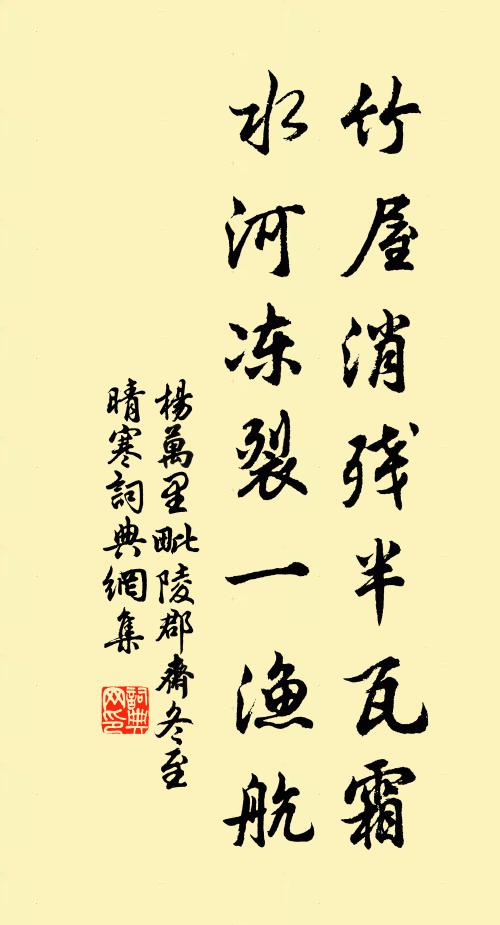 竹屋消残半瓦霜
水河冻裂一渔航
楊萬里毗陵郡齋冬至
晴寒詞典網集
詞典网印